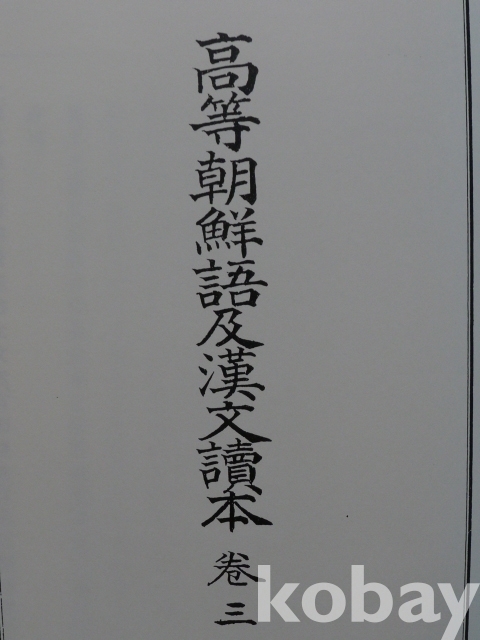 高等朝鮮語及漢文讀本 卷三
kobay